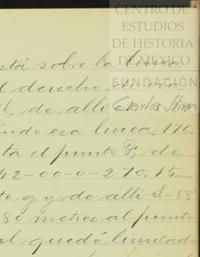 CENTRO DE
ESTUDIOS
DE HISTORIA
DE MÉXICO
FUNDACIÓN
está sobre la línea
derecho
de allí Carlos
línea, 176
el punto F, de
42-00-0-270.15
y de allí S-58
80 metros al punto
quedó limitada